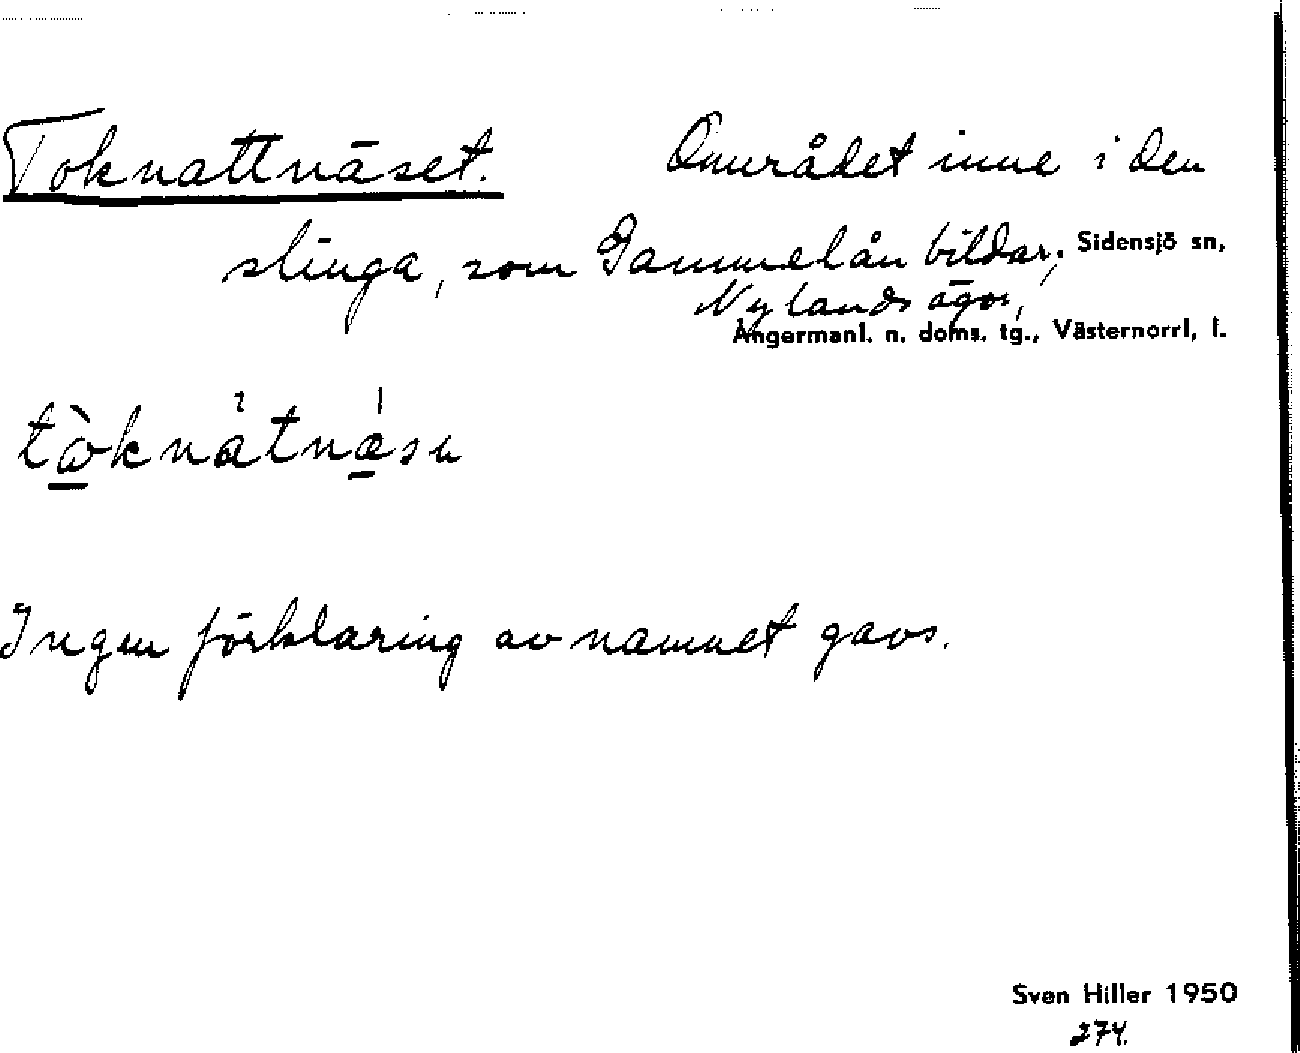 Toknattnäset. Området inne i den
slinga, som Gammelån bildar, Sidensjö sn,
Nylands ägor,
Ångermanl. n. doms. tg., Västernorrl. l.
Ingen förklaring av namnet gavs.
Sven Hiller 1950
274.